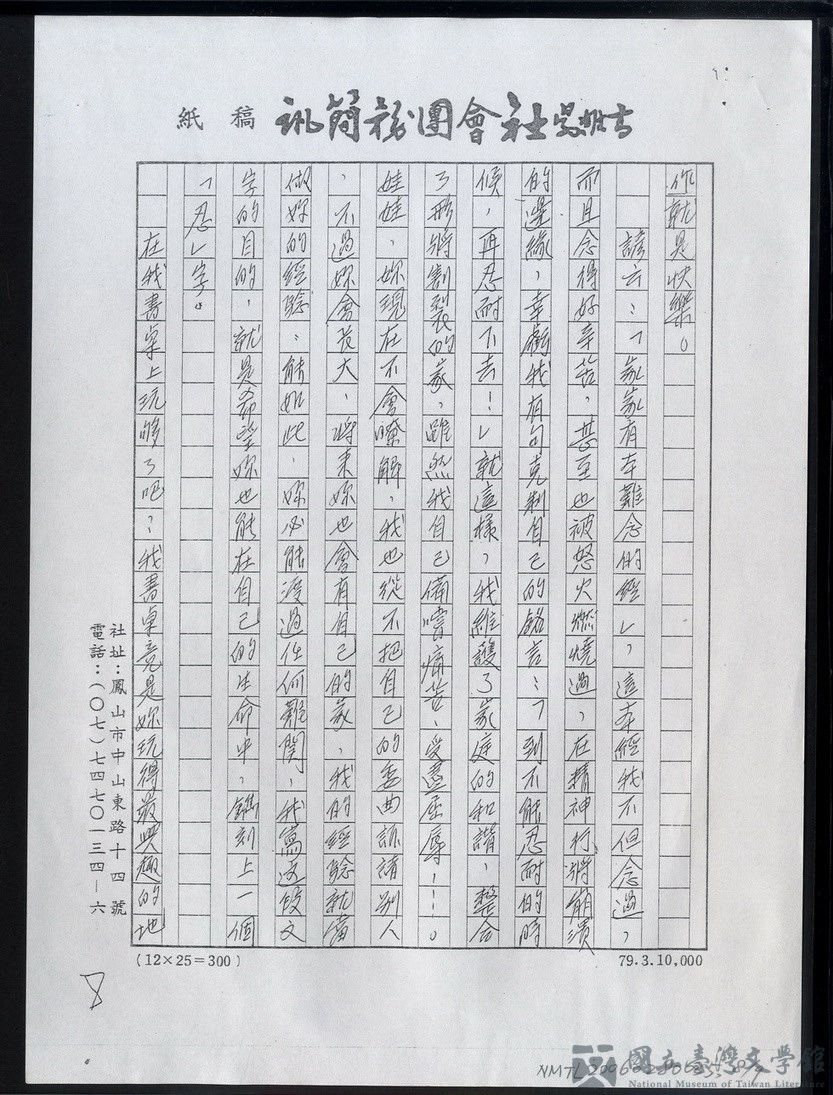 稿紙
作就是快樂。
諺云：「家家有本難念的經」，這本經我不但念過，
而且念得好辛苦，甚至也被怒火燃燒過，在精神行將崩潰
的邊緣，幸虧我有句克制自己的銘言：「到不能忍耐的時
候，再忍耐下去！」就這樣，我維護了家庭的和諧，整合
了形將割裂的家，雖然我自己備嚐痛苦、受盡屈辱……。
娃娃，妳現在不會瞭解，我也從不把自己的委曲訴諸別人
，不過妳會長大，將來妳也會有自己的家，我的經驗就當
做妳的經驗，能如此，妳必能渡過任何難關，我寫這段文
字的目的，就是希望妳也能在自己的生命中，鐫刻上一個
「忍」字。
在我書桌上玩够了吧？我書桌竟是妳玩得最興趣的地
社址：鳳山市中山東路十四號
電話：（〇七）七四七〇一三四－六
(12×25=300)
79.3.10,000
8
國立臺灣文學館
National Museum of Taiwan Literature